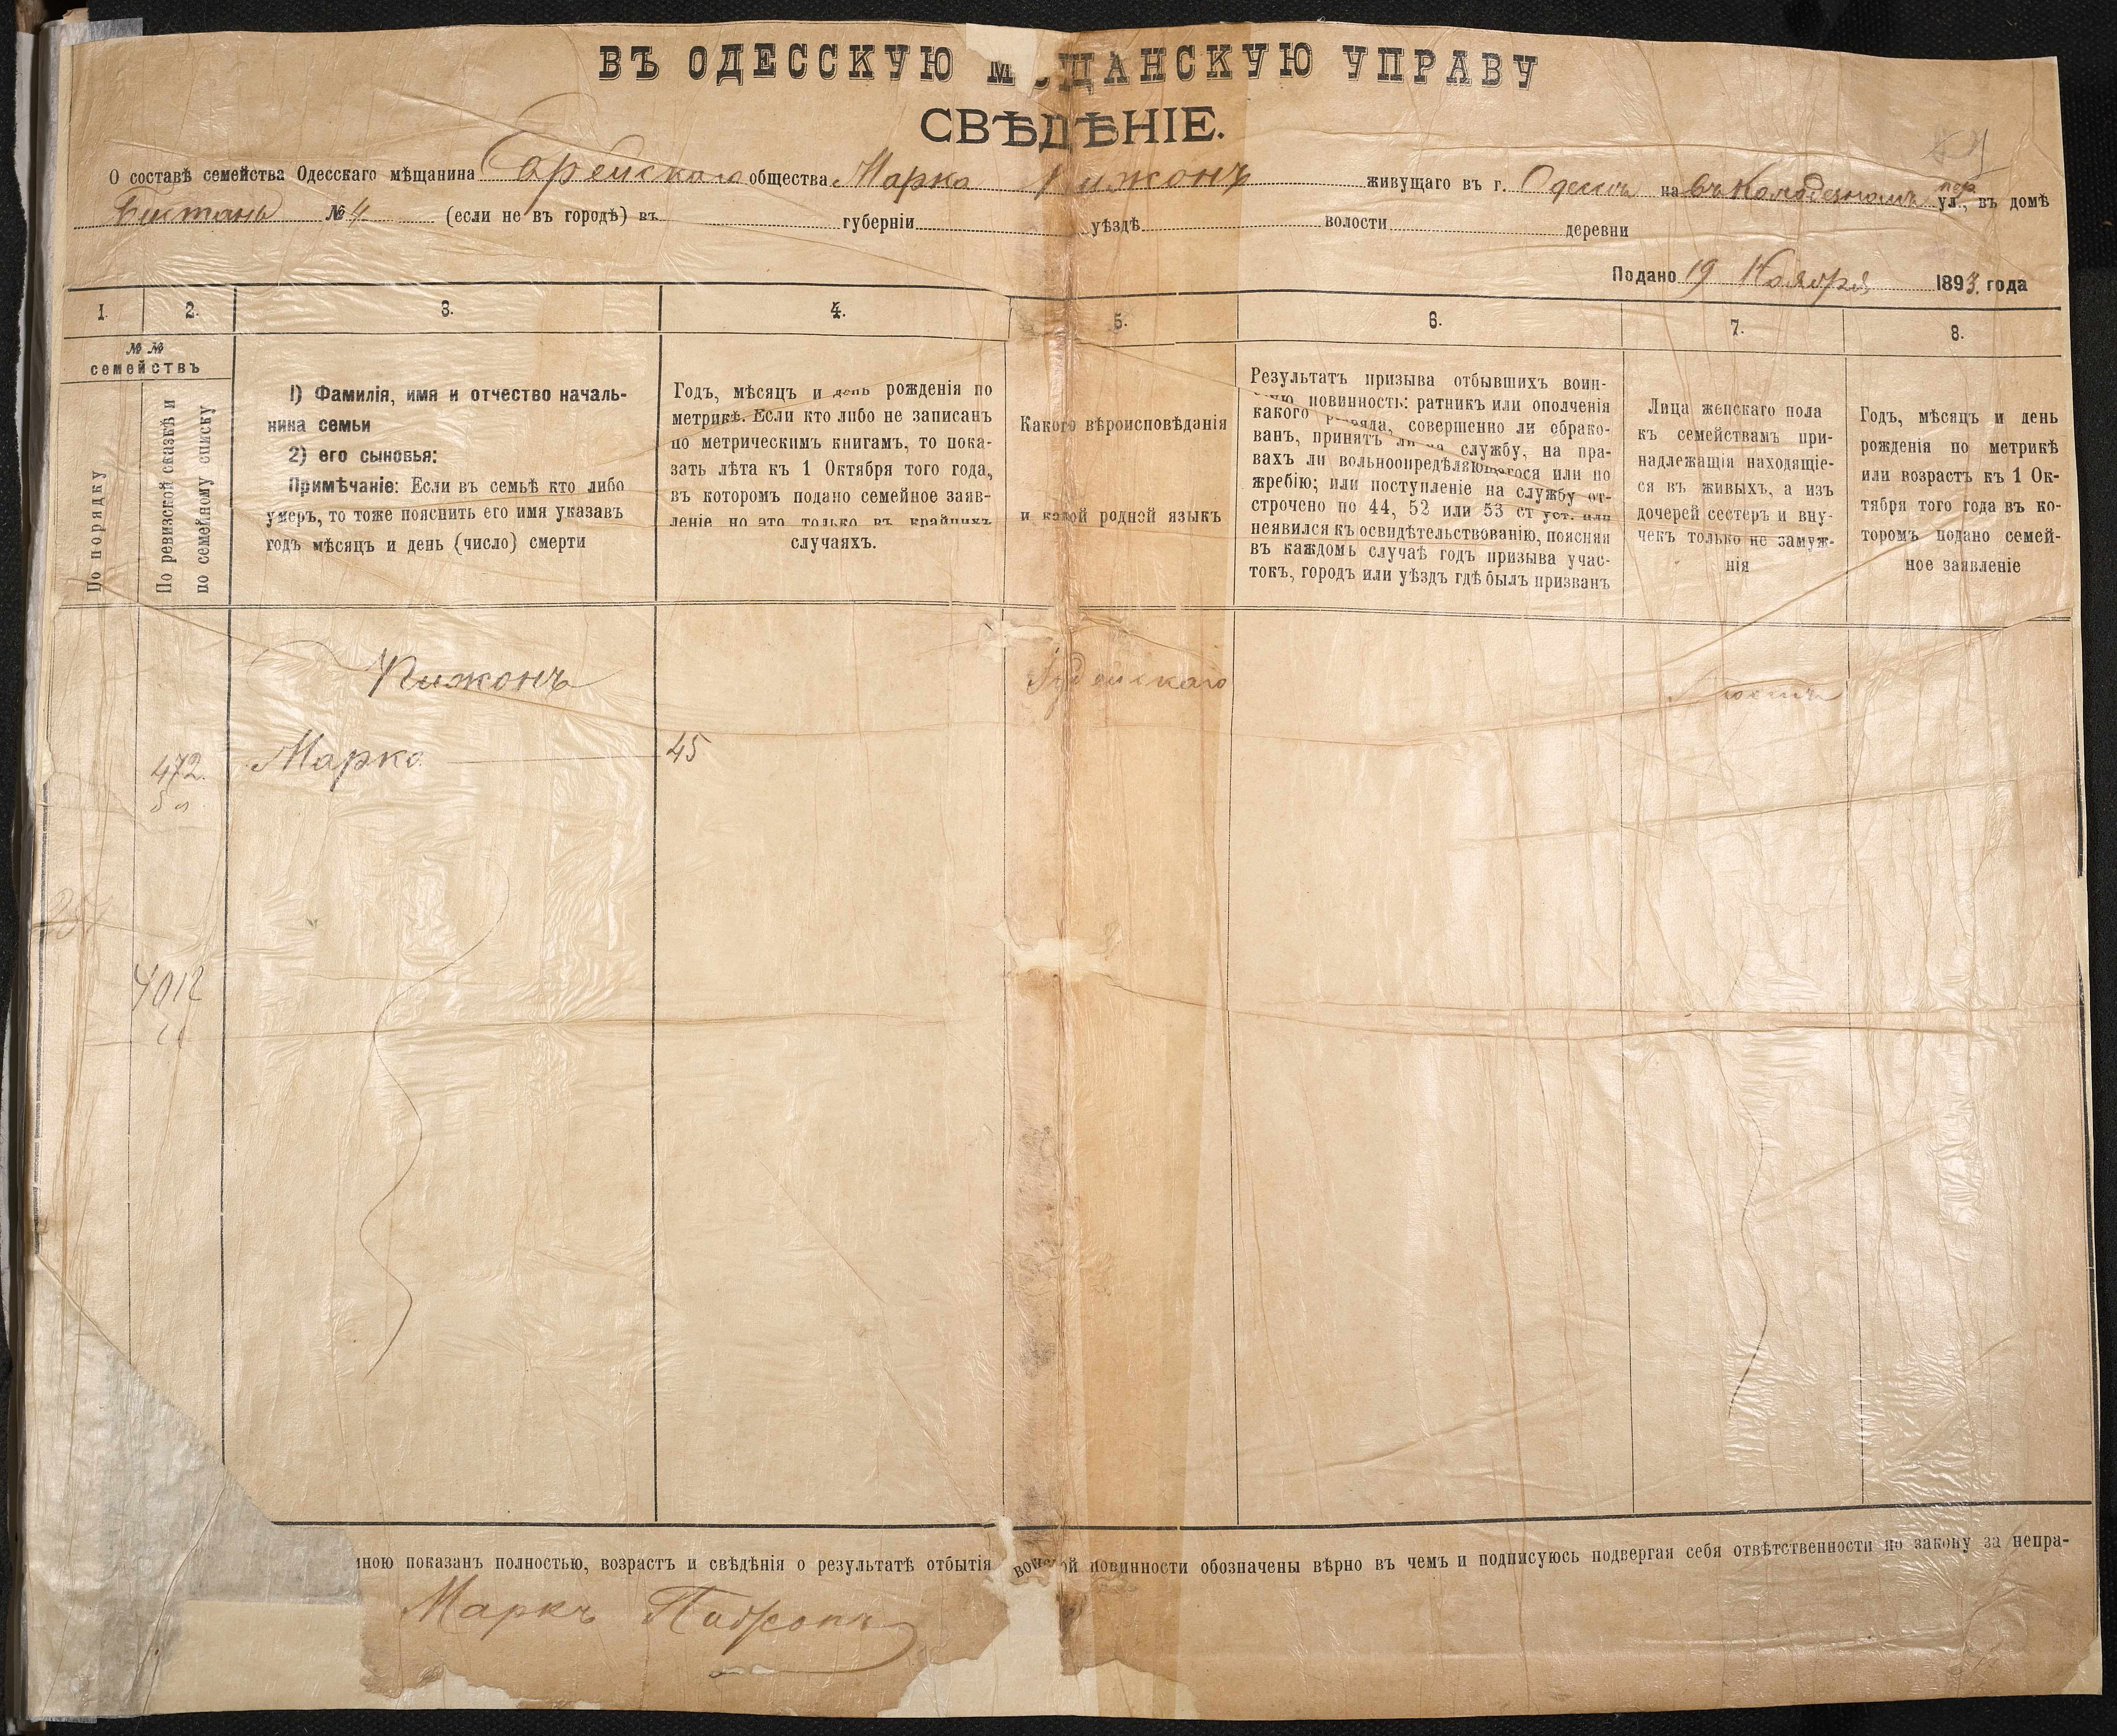 ВЪ ОДЕССКУЮ М ЩАНСКУЮ УПРАВУ
СВѢДѢНІЕ.
О составѣ семейства Одесскаго мѣщанина общества Марка Пижонъ живущаго въ г. Одессѣ на въ Колодезномъ пер. ул., въ домѣ
№ 4 (если не въ городѣ) въ губерніи уѣздѣ волости деревни
Подано 19 Ноября 1893 года
1. 2. 3. 4. 5. 6. 7. 8.
№ №
семействъ
По порядку
По ревизской сказкѣ и
по семейному списку
1) Фамилія, имя и отчество началь-
ника семьи
2) его сыновья:
Примѣчаніе: Если въ семьѣ кто либо
умеръ, то тоже пояснить его имя указавъ
годъ мѣсяцъ и день (число) смерти
Годъ, мѣсяцъ и день рожденія по
метрикѣ. Если кто либо не записанъ
по метрическимъ книгамъ, то пока-
зать лѣта къ 1 Октября того года,
въ которомъ подано семейное заяв-
леніе но это только въ крайнихъ
случаяхъ.
Какого вѣроисповѣданія
и какой родной языкъ
Результатъ призыва отбывшихъ воин-
скую повинность: ратникъ или ополченія
какого разряда, совершенно ли обрако-
ванъ, принятъ ли на службу, на пра-
вахъ ли вольноопредѣляющагося или по
жребію; или поступленіе на службу от-
строчено по 44, 52 или 53 ст уст. или
неявился къ освидѣтельствованію, поясняя
въ каждомъ случаѣ годъ призыва учас-
токъ, городъ или уѣздъ гдѣ былъ призванъ
Лица женскаго пола
къ семействамъ при-
надлежащія находящіе-
ся въ живыхъ, а изъ
дочерей сестеръ и вну-
чекъ только не замуж-
нія
Годъ, мѣсяцъ и день
рожденія по метрикѣ
или возрастъ къ 1 Ок-
тября того года въ ко-
торомъ подано семей-
ное заявленіе
Пижонъ
Іудейскаго
472.
Марко
45
4012
мною показанъ полностью, возрастъ и свѣдѣнія о результатѣ отбытія воинской повинности обозначены вѣрно въ чемъ и подписуюсь подвергая себя отвѣтственности по закону за непра-
Маркъ Пижонъ